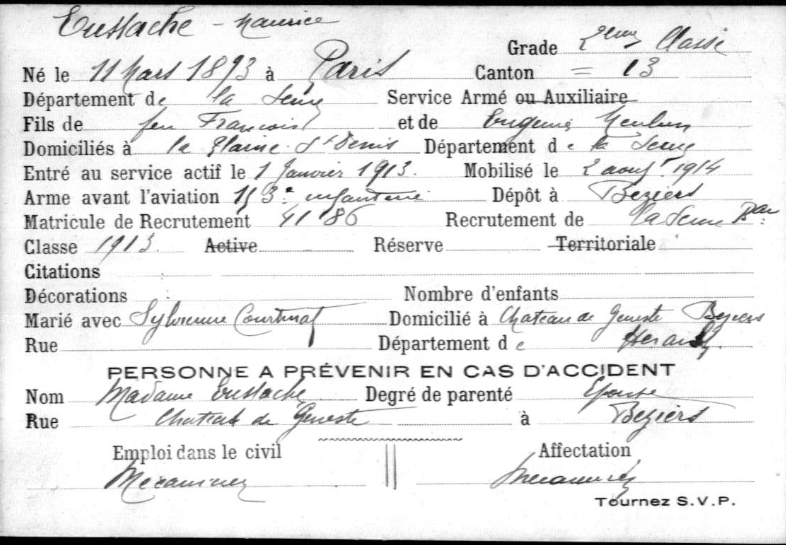 Eustache - Maurice
Grade 2eme Classe
Né le 11 Mars 1893 à Paris Canton = 13
Département de la Seine Service Armé ou Auxiliaire
Fils de feu Francois et de Eugenie
Domiciliés à la Plaine St Denis Département de la Seine
Entré au service actif le 1 Janvier 1913. Mobilisé le 2 aout 1914
Arme avant l'aviation 113e infanterie Dépôt à Beziers
Matricule de Recrutement 4186 Recrutement de la Seine
Classe 1913. Active Réserve Territoriale
Citations
Décorations Nombre d'enfants
Marié avec Sylvienne Domicilié à Chateau de Geneste Beziers
Rue Département de Herault
PERSONNE A PRÉVENIR EN CAS D'ACCIDENT
Nom Madame Eustache Degré de parenté Epouse
Rue Chateau de Geneste à Beziers
Emploi dans le civil Affectation
Mecanicien Mecanicien
Tournez S.V.P.